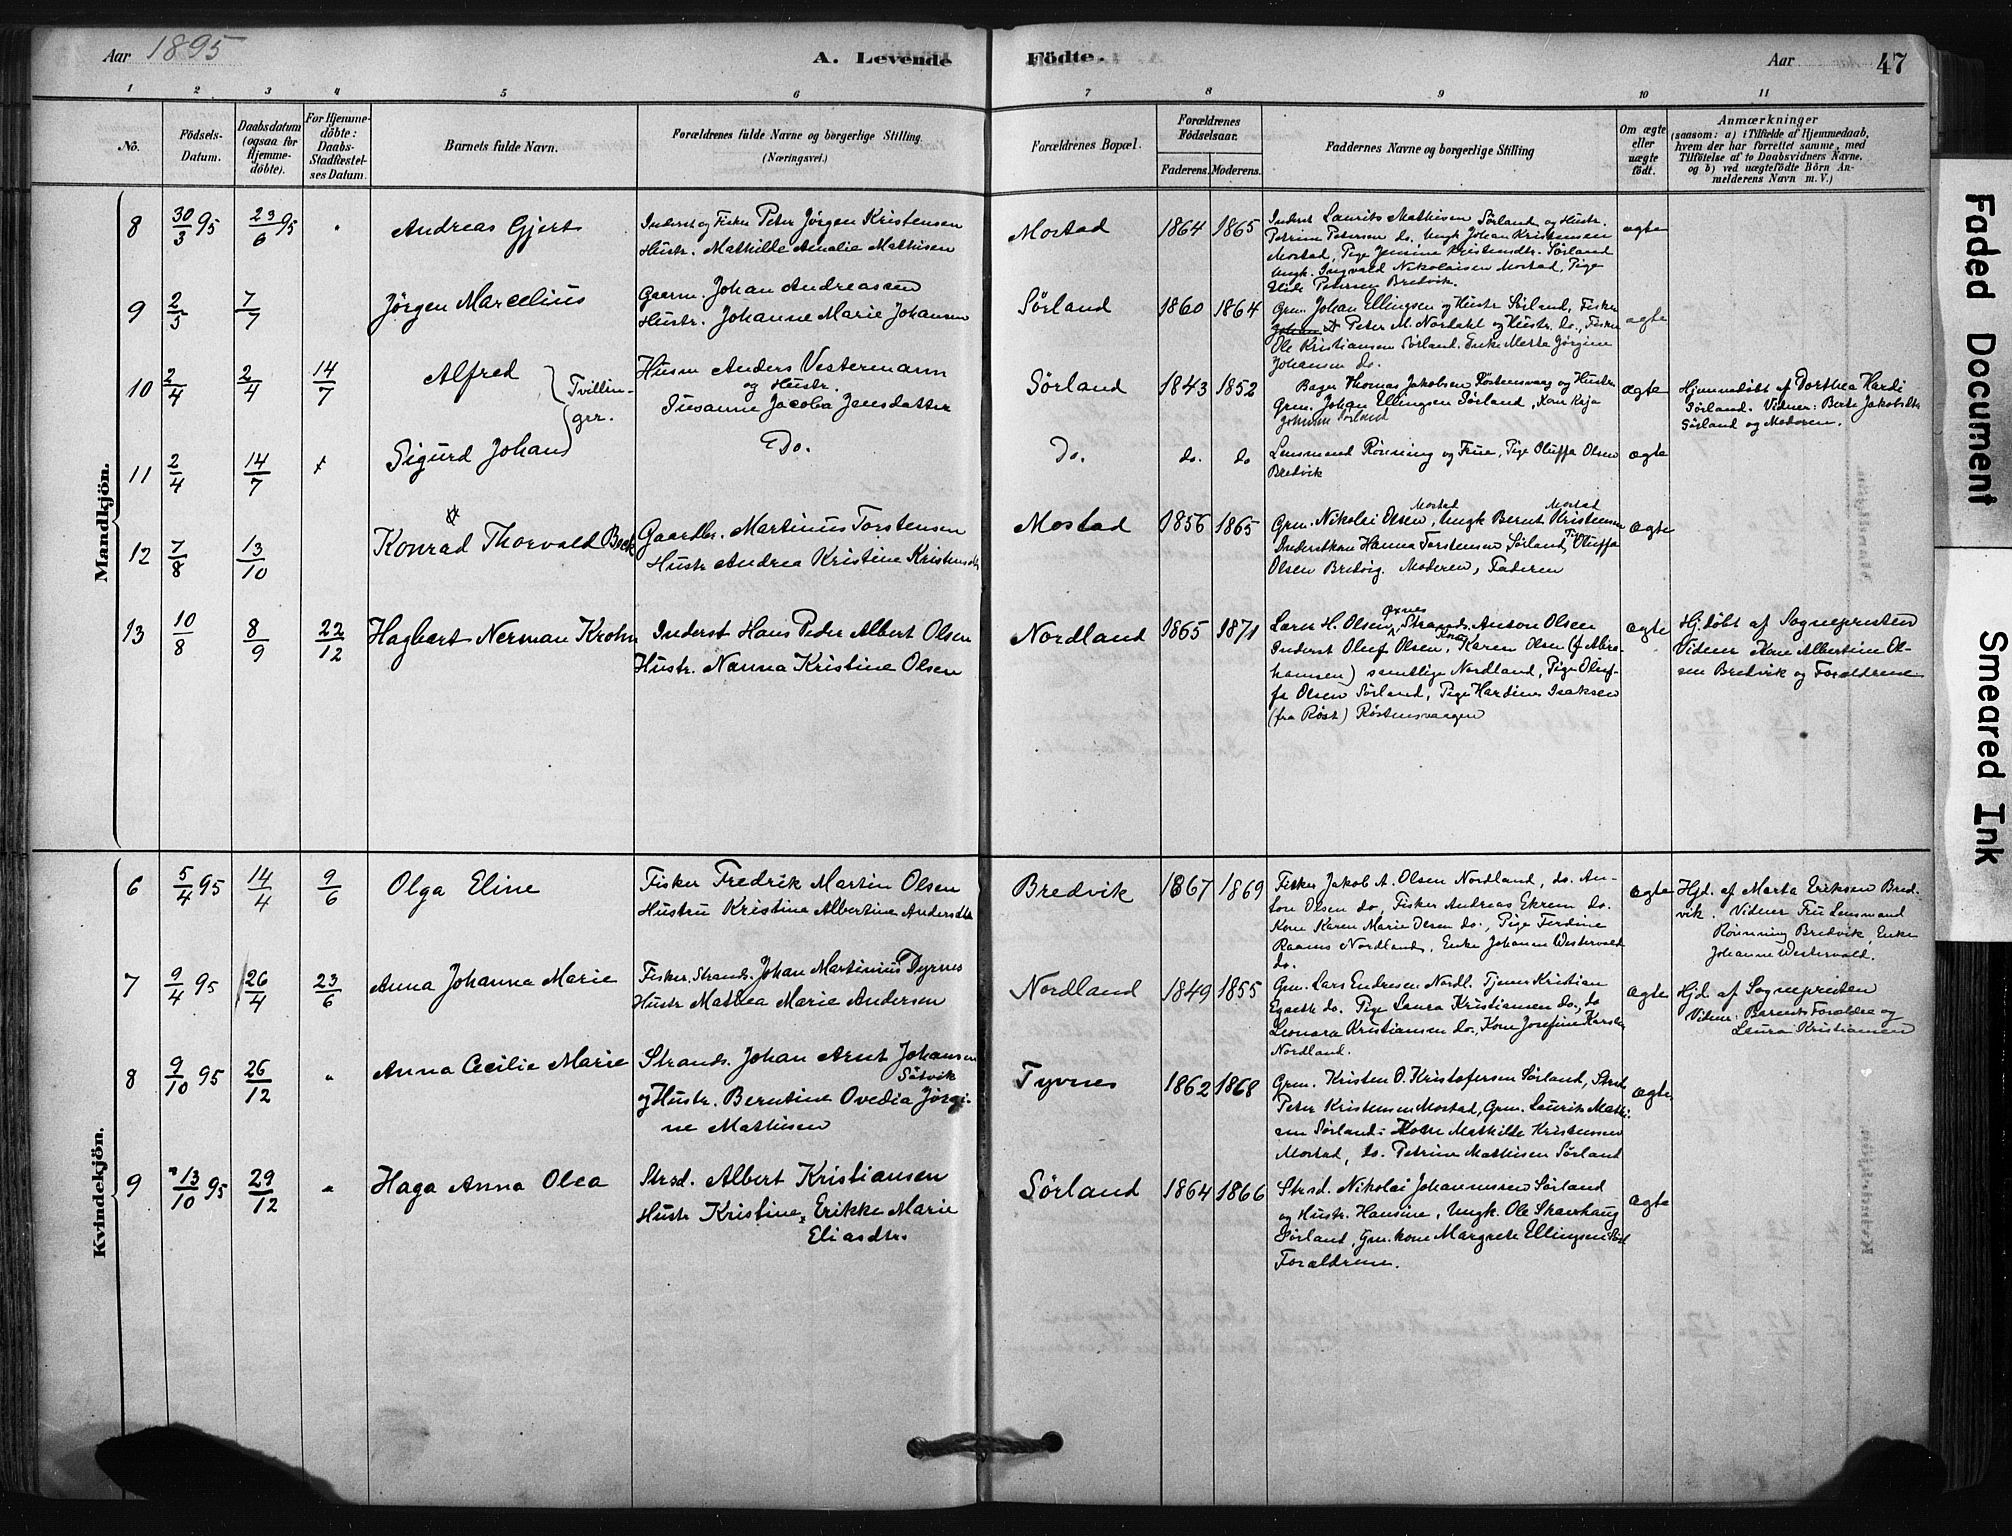 Aar 1895
A. Levende
Födte.
Aar
47
1 2 3 4 5 6 7 8 9 10 11
No.
Födsels-
Datum.
Daabsdatum
(ogsaa for
Hjemme-
döbte).
For Hjemme-
döbte:
Daabs-
Stadfæstel-
ses Datum.
Barnets fulde Navn.
Forældrenes fulde Navne og borgerlige Stilling.
(Næringsvei.)
Forældrenes Bopæl.
Forældrenes
Födselsaar.
Faderens. Moderens.
Faddernes Navne og borgerlige Stilling
Om ægte
eller
uægte
födt.
Anmærkninger
(saasom: a) i Tilfælde af Hjemmedaab,
hvem der har forrettet samme, med
Tilföielse af to Daabsvidners Navne,
og b) ved uægtefödte Börn An-
melderens Navn m. V.)
Mandkjön.
8 30/3 95 23/6 95 " Andreas Gjert
Inderst og Fisker Peter Jörgen Kristensen
Hustr. Mathilde Amalia Mathisen
Mostad 1864 1865
Inderst Laurits Mathisen Sørland og Hustr.
Petrine Petersen do. Ungk. Johan Kristensen
Mostad, Pige Jensine Kristensdtr. Sörland
Ungk. Ingvald Nikolaisen Mostad, Pige
Petersen Bredvik.
ægte
9 2/3 7/7 Jörgen Marcelius
Gaarm. Johan Andreassen
Hustr. Johanne Marie Johansen
Sørland 1860 1864
Grm. Johan Ellingsen og Hustr. Sørland, Fisker
Peter M. Nordahl og Hustr. do., Fisker
Ole Kristiansen Sørland. Enke Merta Jørgine
Johansen do.
ægte
10 2/4 2/4 14/7 Alfred
Tvillin-
ger.
Husm Anders Vestermann
og Hustr.
Susanne Jacobia Jensdatter
Sørland 1843 1852
Bager Thomas Jakobsen Røstensvaag og Hustr.
Grm. Johan Ellingsen Sørland, Kone Kaja
Johansen Sørland
ægte
Hjemmedöbt af Dorthea Hardi
Sørland. Vidner: Berte Jakobsdtr
Sørland og Moderen.
11 2/4 14/7 Sigurd Johan
Do.
Do. do. do
Lensmand Rønning og Frue, Pige Oluffa Olsen
Bredvik
ægte
12 7/8 13/10 Konrad Thorvald Beck
Gaardbr. Martinus Torstensen
Hustr Andrea Kristine Kristensdtr
Mostad 1856 1865
Mostad Mostad
Grm. Nikolai Olsen, Ungk Bernt Kristensen
Inderstkone Hanna Torstensen Sørland, Pige Oluffa
Olsen Bredvig. Moderen, Faderen
ægte
13 10/8 8/9 22/12 Hagbart Nerman Krohn
Inderst Hans Peder Albert Olsen
Hustr. Nanna Kristine Olsen
Nordland 1865 1871
Lærer H. Olsen, Strands. Anton Olsen
Inderst Oluf Olsen, Kone Karen Olsen (f. Abra-
hamsen) samtlige Nordland, Pige Oluf-
fa Olsen Sørland, Pige Hardine Isaksen
(fra Røst) Røstensvaagen
ægte
Hj.døbt af Sognepresten
Vidner Kone Albertine Ol-
sen Bredvik og Forældrene
Kvindekjön.
6 5/4 95 14/4 9/6 Olga Eline
Fisker Fredrik Martin Olsen
Hustru Kristine Albertine Andersdtr
Bredvik 1867 1869
Fisker Jakob A. Olsen Nordland, do. An-
ton Olsen do, Fisker Andreas Ekrem do.
Kone Karen Marie Olsen do., Pige Ferdine
Raanes Nordland, Enke Johanna Westervald
do.
ægte
Hjd. af Marta Eriksen Bred-
vik. Vidner Fru Lensmand
Rønning Bredvik, Enke
Johanne Westervald.
7 9/4 95 26/4 23/6 Anna Johanna Marie
Fisker Strands. Johan Martinius Tyvnes
Hustr Mathea Marie Andersen
Nordland 1849 1855
Grm. Lars Endresen Nordl. Tjener Kristian
do. Pige Laura Kristiansen do., do
Leonara Kristiansen do. Kone Josefine Karsten
Nordland.
ægte
Hjd. af Sognepresten
Vidner: Barnets Forældre og
Laura Kristiansen
8 9/10 95 26/12 " Anna Cecilie Marie
Strands. Johan Arnt Johansen
Sötvik
og Hustr. Berntine Ovedia Jørgi-
ne Mathisen
Tyvnes 1862 1868
Grm. Kristen O. Kristofersen Sørland, Strds
Peter Kristensen Mostad, Grm. Laurits Mathi-
sen Sørland: Kone Mathilde Kristensen
Mostad, do. Petrine Mathisen Sørland
ægte
9 13/10 95 29/12 " Haga Anna Olea
Strsd. Albert Kristiansen
Hustr Kristine, Erikke Marie
Eliasdtr.
Sørland 1864 1866
Strsd. Nikolai Johannessen Sørland
og Hustr. Hansine, Ungk. Ole Skarshaug
Sørland, Grm. kone Margrete Ellingsen Sørl
Forældrene.
ægte
Faded Document
Smeared Ink